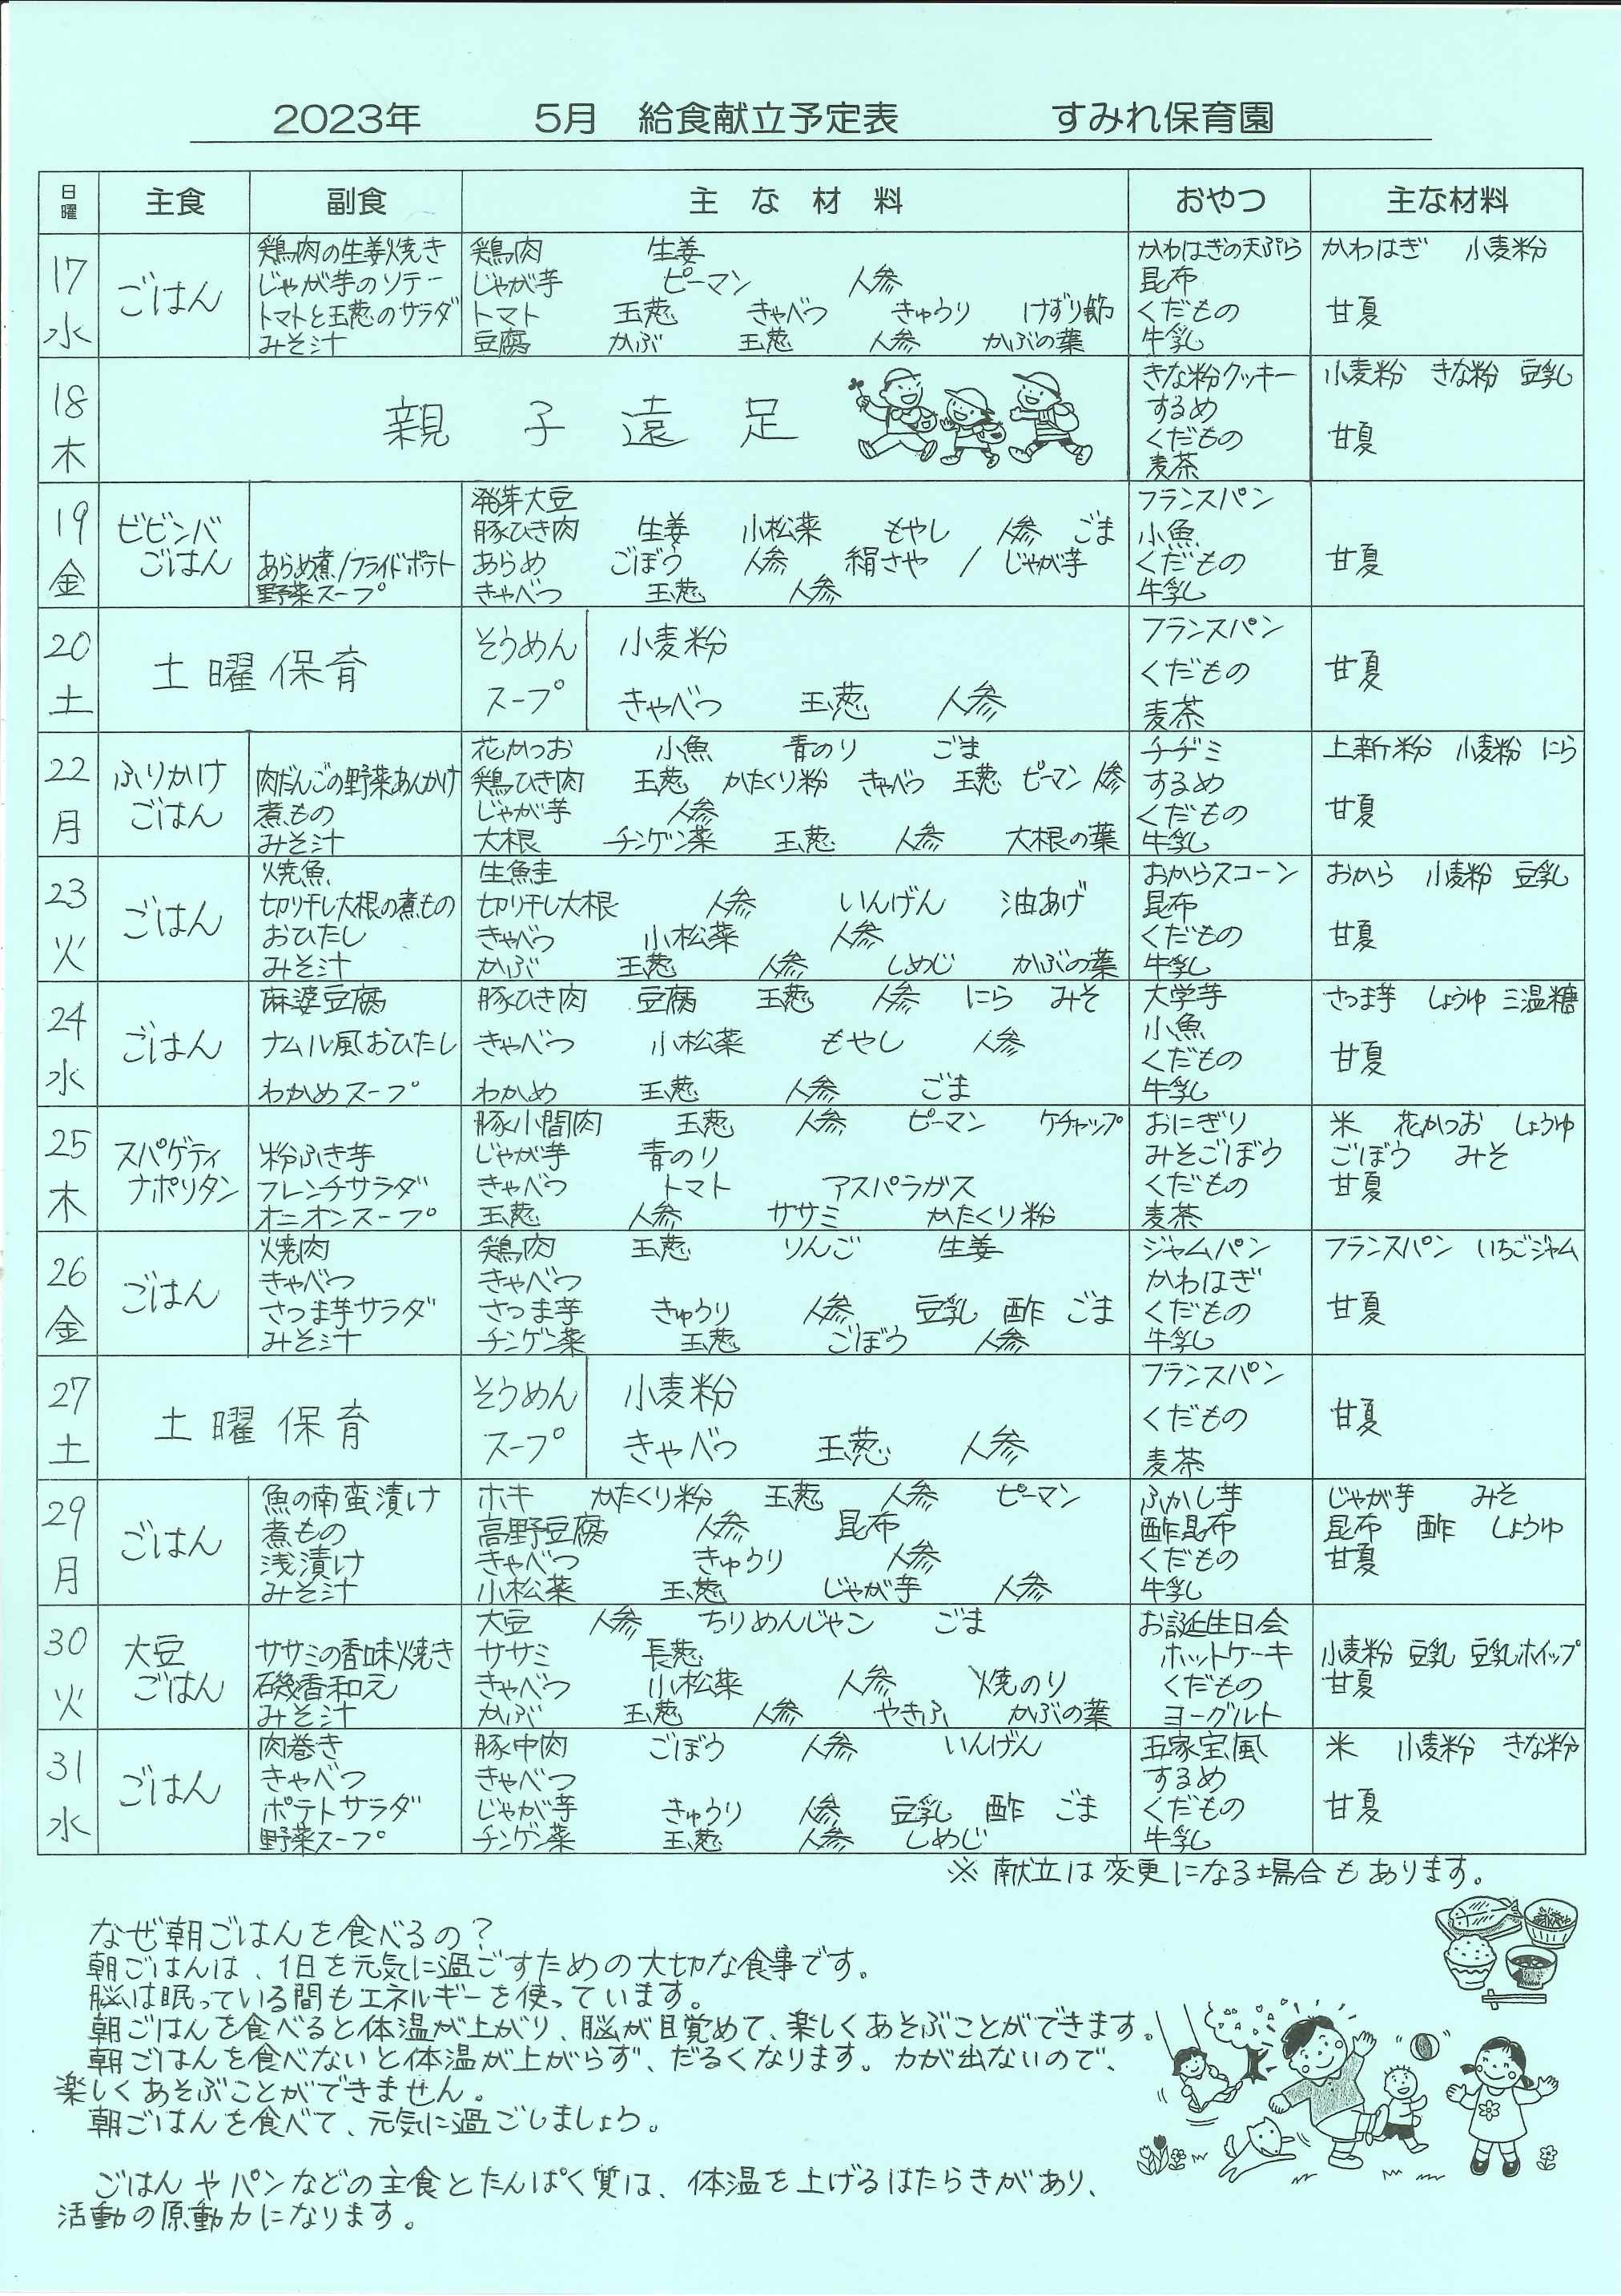 2023年 5月 給食献立予定表 すみれ保育園
日曜 主食 副食 主な材料 おやつ 主な材料
17 水 ごはん
鶏肉の生姜焼き 鶏肉 生姜 かわはぎの天ぷら かわはぎ 小麦粉
じゃが芋のソテー じゃが芋 ピーマン 人参 昆布
トマトと玉葱のサラダ トマト 玉葱 きゃべつ きゅうり けずり節 くだもの 甘夏
みそ汁 豆腐 かぶ 玉葱 人参 かぶの葉 牛乳
18 木 親子遠足
きな粉クッキー 小麦粉 きな粉 豆乳
するめ
くだもの 甘夏
麦茶
19 金 ビビンバごはん
発芽大豆 フランスパン
豚ひき肉 生姜 小松菜 もやし 人参 ごま 小魚
あらめ煮/フライドポテト あらめ ごぼう 人参 絹さや / じゃが芋 くだもの 甘夏
野菜スープ きゃべつ 玉葱 人参 牛乳
20 土 土曜保育
そうめん 小麦粉 フランスパン
くだもの 甘夏
スープ きゃべつ 玉葱 人参 麦茶
22 月 ふりかけごはん
花かつお 小魚 青のり ごま チヂミ 上新粉 小麦粉 にら
肉だんごの野菜あんかけ 鶏ひき肉 玉葱 かたくり粉 きゃべつ 玉葱 ピーマン 人参 するめ
煮もの じゃが芋 人参 くだもの 甘夏
みそ汁 大根 チンゲン菜 玉葱 人参 大根の葉 牛乳
23 火 ごはん
焼魚 生鮭 おからスコーン おから 小麦粉 豆乳
切り干し大根の煮もの 切り干し大根 人参 いんげん 油あげ 昆布
おひたし きゃべつ 小松菜 人参 くだもの 甘夏
みそ汁 かぶ 玉葱 人参 しめじ かぶの葉 牛乳
24 水 ごはん
麻婆豆腐 豚ひき肉 豆腐 玉葱 人参 にら みそ 大学芋 さつま芋 しょうゆ 三温糖
小魚
ナムル風おひたし きゃべつ 小松菜 もやし 人参 くだもの 甘夏
わかめスープ わかめ 玉葱 人参 ごま 牛乳
25 木 スパゲティナポリタン
豚小間肉 玉葱 人参 ピーマン ケチャップ おにぎり 米 花かつお しょうゆ
粉ふき芋 じゃが芋 青のり みそごぼう ごぼう みそ
フレンチサラダ きゃべつ トマト アスパラガス くだもの 甘夏
オニオンスープ 玉葱 人参 ササミ かたくり粉 麦茶
26 金 ごはん
焼肉 鶏肉 玉葱 りんご 生姜 ジャムパン フランスパン いちごジャム
きゃべつ きゃべつ かわはぎ
さつま芋サラダ さつま芋 きゅうり 人参 豆乳 酢 ごま くだもの 甘夏
みそ汁 チンゲン菜 玉葱 ごぼう 人参 牛乳
27 土 土曜保育
そうめん 小麦粉 フランスパン
くだもの 甘夏
スープ きゃべつ 玉葱 人参 麦茶
29 月 ごはん
魚の南蛮漬け ホキ かたくり粉 玉葱 人参 ピーマン ふかし芋 じゃが芋 みそ
煮もの 高野豆腐 人参 昆布 酢昆布 昆布 酢 しょうゆ
浅漬け きゃべつ きゅうり 人参 くだもの 甘夏
みそ汁 小松菜 玉葱 じゃが芋 人参 牛乳
30 火 大豆ごはん
大豆 人参 ちりめんじゃこ ごま お誕生日会
ササミの香味焼き ササミ 長葱 ホットケーキ 小麦粉 豆乳 豆乳ホイップ
磯香和え きゃべつ 小松菜 人参 焼のり くだもの 甘夏
みそ汁 かぶ 玉葱 人参 やきふ かぶの葉 ヨーグルト
31 水 ごはん
肉巻き 豚中肉 ごぼう 人参 いんげん 五家宝風 米 小麦粉 きな粉
きゃべつ きゃべつ するめ
ポテトサラダ じゃが芋 きゅうり 人参 豆乳 酢 ごま くだもの 甘夏
野菜スープ チンゲン菜 玉葱 人参 しめじ 牛乳
※献立は変更になる場合もあります。
なぜ朝ごはんを食べるの?
朝ごはんは、1日を元気に過ごすための大切な食事です。
脳は眠っている間もエネルギーを使っています。
朝ごはんを食べると体温が上がり、脳が目覚めて、楽しくあそぶことができます。
朝ごはんを食べないと体温が上がらず、だるくなります。力が出ないので、
楽しくあそぶことができません。
朝ごはんを食べて、元気に過ごしましょう。
ごはんやパンなどの主食とたんぱく質は、体温を上げるはたらきがあり、
活動の原動力になります。